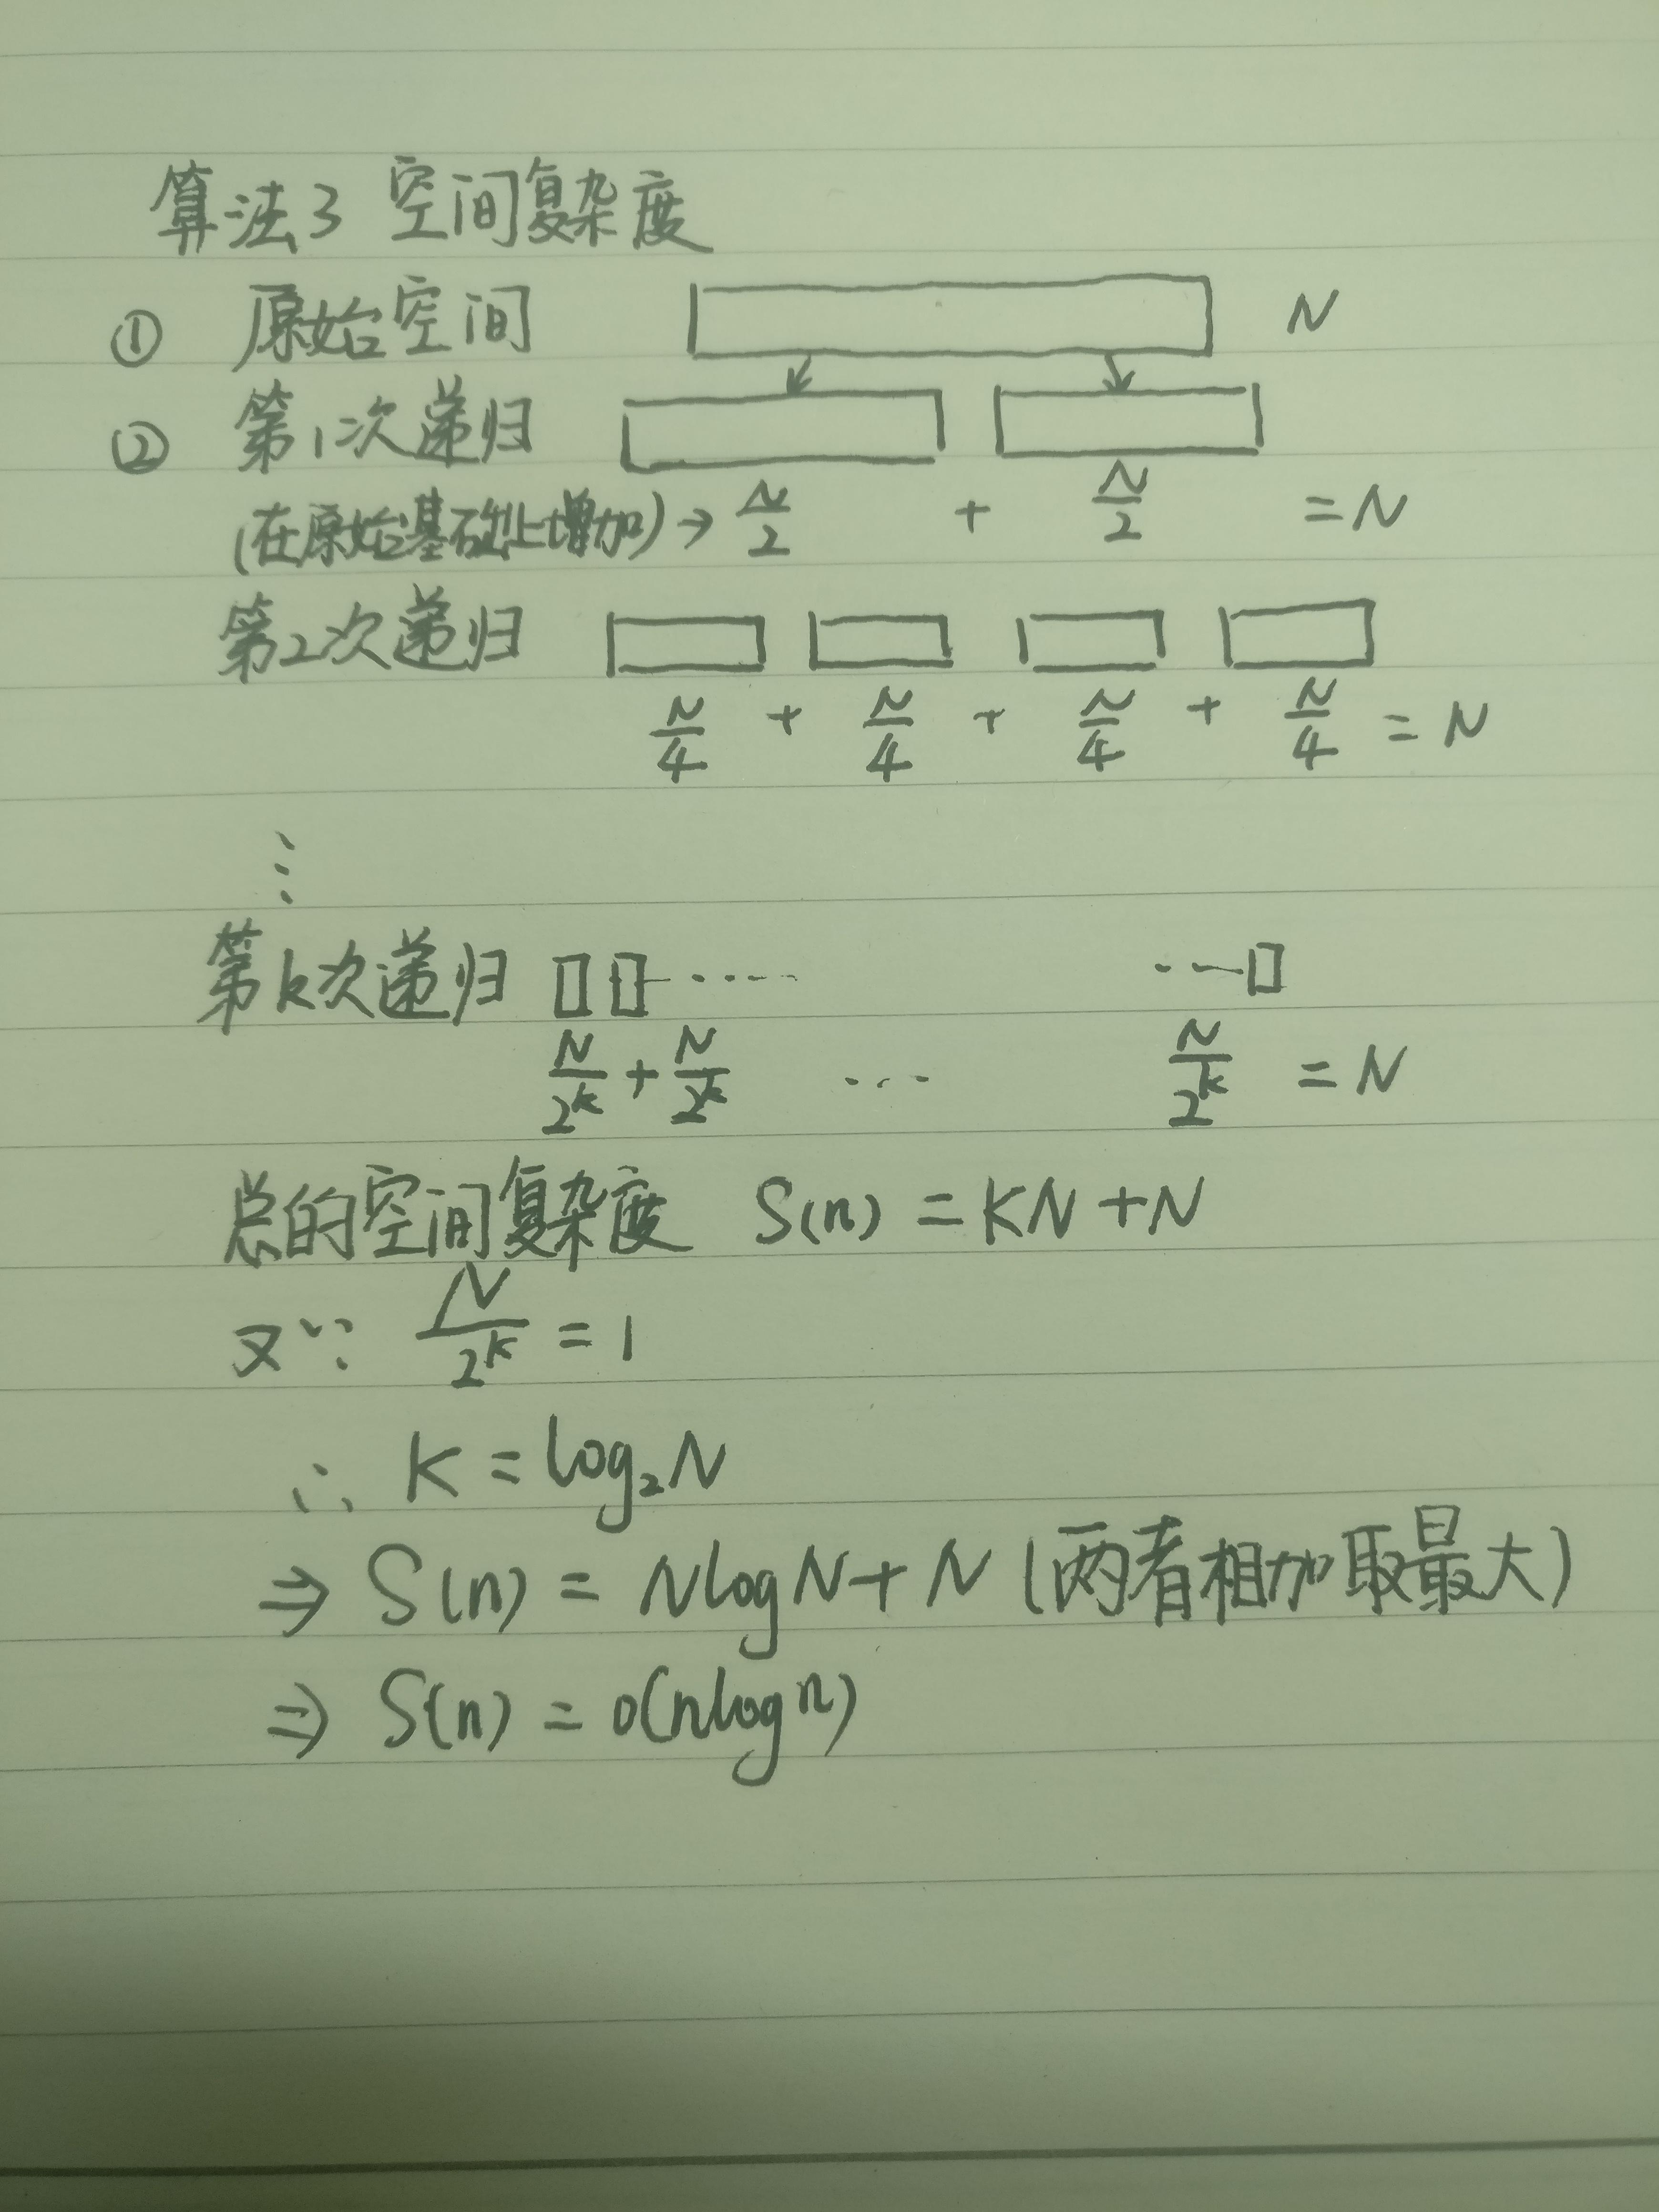 算法3 空间复杂度
① 原始空间 N
② 第1次递归
(在原始基础上增加)→ N/2 + N/2 = N
第2次递归
N/4 + N/4 + N/4 + N/4 = N
⋮
第k次递归 ····· ··—
N/2^k + N/2^k ... N/2^k = N
总的空间复杂度 S(n) = KN + N
又∵ N/2^k = 1
∴ K = log₂N
⇒ S(n) = NlogN + N (两者相加取最大)
⇒ S(n) = o(nlogn)